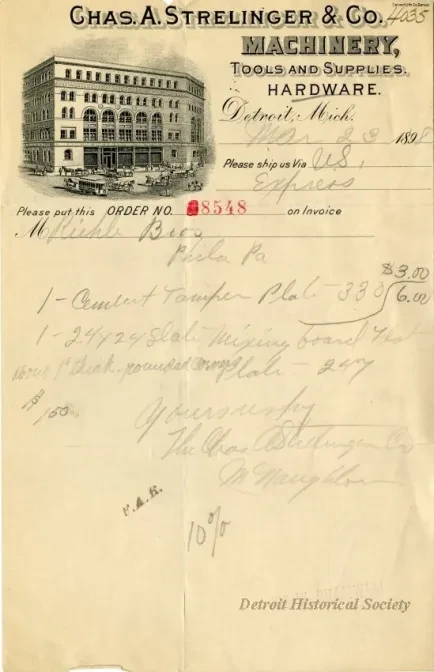 CHAS. A. STRELINGER & CO. 4035
MACHINERY,
TOOLS AND SUPPLIES.
HARDWARE.
Detroit, Mich.
Mar 23 1898
Please ship us Via U.S.
Express
Please put this ORDER NO. 8548 on Invoice
M Riehle Bros
Phila Pa
$3.00
1 - Cement Tamper Plate - 330 6.00
1 - 24x24 Slate Mixing board Flat
about 1" thick - rounded corners Plate - 247
$1.50
Yours resply
The Chas A Strelinger Co
McNaughton
F.A.R.
10%
Detroit Historical Society